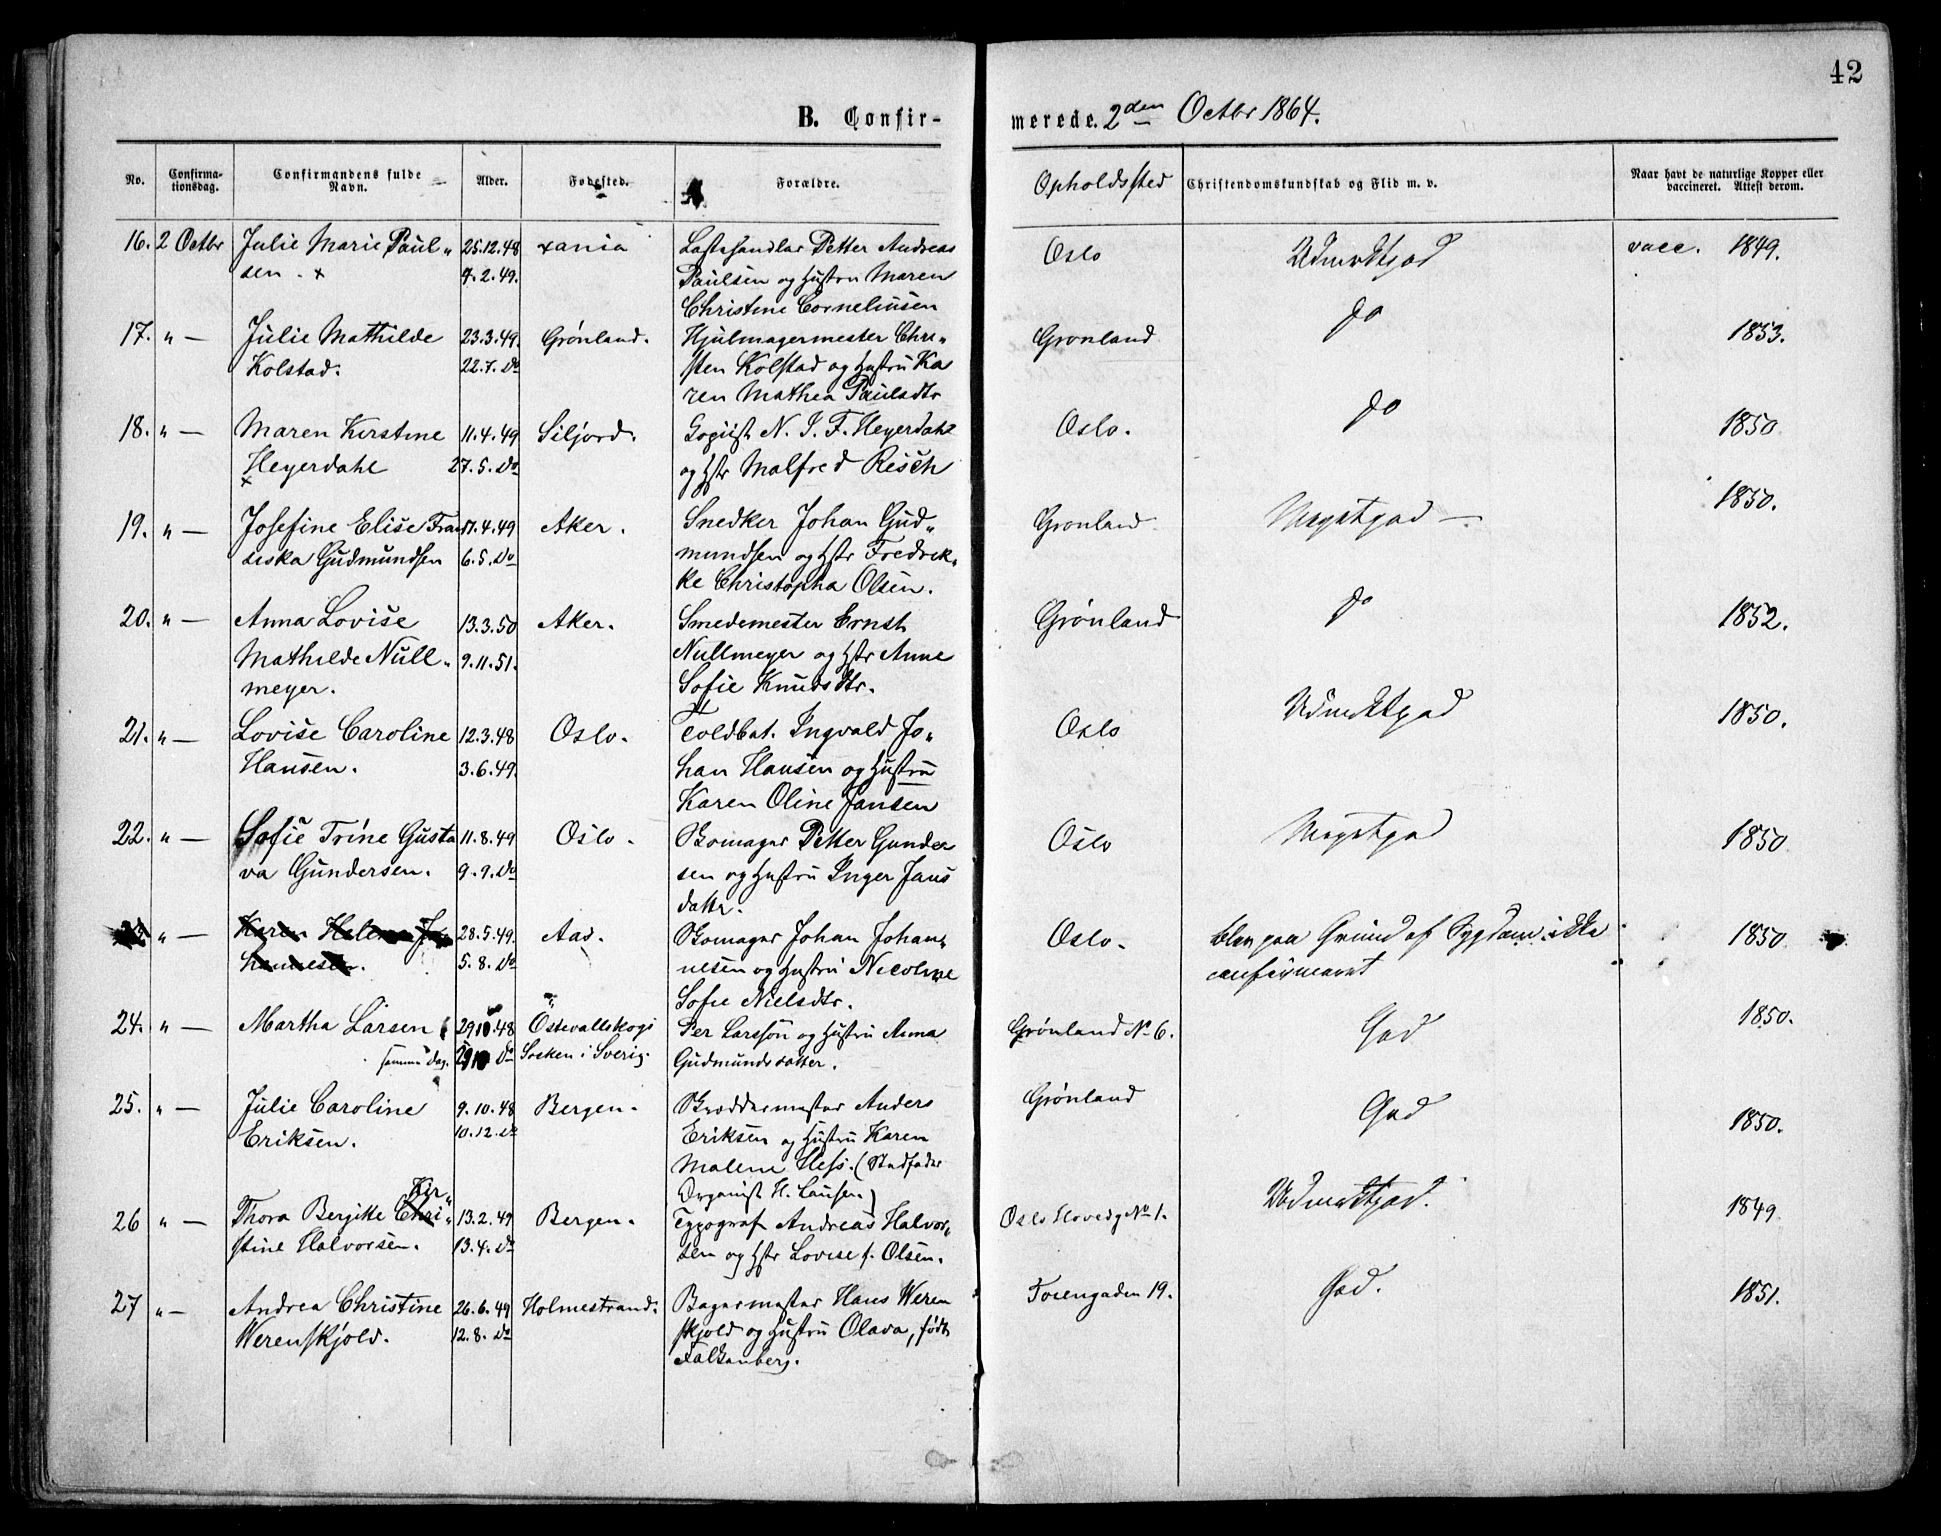 42
B. Confirmerede. 2den Octbr 1864.
No. Confirmationsdag. Confirmandens fulde Navn. Alder. Fødested. Forældre. Opholdssted Christendomskundskab og Flid m. v. Naar havt de naturlige Kopper eller vaccineret. Attest derom.
16. 2 Octbr Julie Marie Paul„ 25.12.48 xania Petter Andreas Oslo Udmrktgod vacc. 1849.
sen. x 7.2.49. Paulsen og Hustru Maren
Christine Corneliusen
17. „ — Julie Mathilde 23.3.49. Grønland. Hjulmagermester Chri„ Grønland do 1853.
Kolstad. 22.7. Do sten Kolstad og Hustru Ka
ren Mathea Paulsdtr
18. „ — Maren Kirstine 11.4.49 Siljord. N. J. F. Heyerdahl Oslo. do 1850
x Heyerdahl 27.5. Do og Hstr Malfred Resch
19. „ — Josefine Elise Fran 17.4.49 Aker. Snedker Johan Gud„ Grønland Megetgod — 1850.
siska Gudmundsen 6.5. Do mundsen og Hstr Fredrik„
ke Christopha Olsen.
20. „ — Anna Lovise 13.3.50 Aker. Smedemester Ernst Grønland do 1852.
Mathilde Null„ 9.11.51. Nullmeyer og Hstr Anne
meyer. Sofie Knudsdtr.
21. „ — Lovise Caroline 12.3.48 Oslo. Toldbet. Ingvald Jo„ Oslo Udmrktgod 1850.
Hansen. 3.6.49. han Hansen og Hustru
Karen Oline Jansen
22. „ — Sofie Trine Gusta 11.8.49 Oslo. Petter Gunder Oslo Megetgod 1850
va Gundersen. 9.9. Do sen og Hustru Inger Jans
datter.
23. „ — Karen Helene Jo 28.5.49. Aas. Johan Johan„ Oslo. blev paa Grund af Sygdom ikke 1850
hannesen. 5.8. Do nesen og Hustru Nicoline confirmeret
Sofie Nielsdtr.
24. „ — Martha Larsen 29.10.48 Östevallskogs Per Larsson og Hustru Anna Grønland No 6. God 1850.
samme dag. 29.10 Do Socken i Sverig. Gudmundsdatter.
25. „ — Julie Caroline 9.10.48 Bergen. Anders Grønland God 1850.
Eriksen. 10.12. do Eriksen og Hustru Karen
Malene Hess. (Stedfader
Organist H. Lausen)
Kir„
26 „ — Thora Bergitte Chri„ 13.2.49 Bergen. Typograf Andreas Halvor„ Oslo Hovedg No 1. Udmrktgod. 1849
stine Halvorsen. 13.4. Do sen og Hstr Lovise f. Olsen.
27 „ — Andrea Christine 26.6.49 Holmestrand. Bagermester Hans Weren Tosengaden 19. God. 1851.
Werenskjold. 12.8. Do skjold og Hustru Olava, født
Falkenberg.